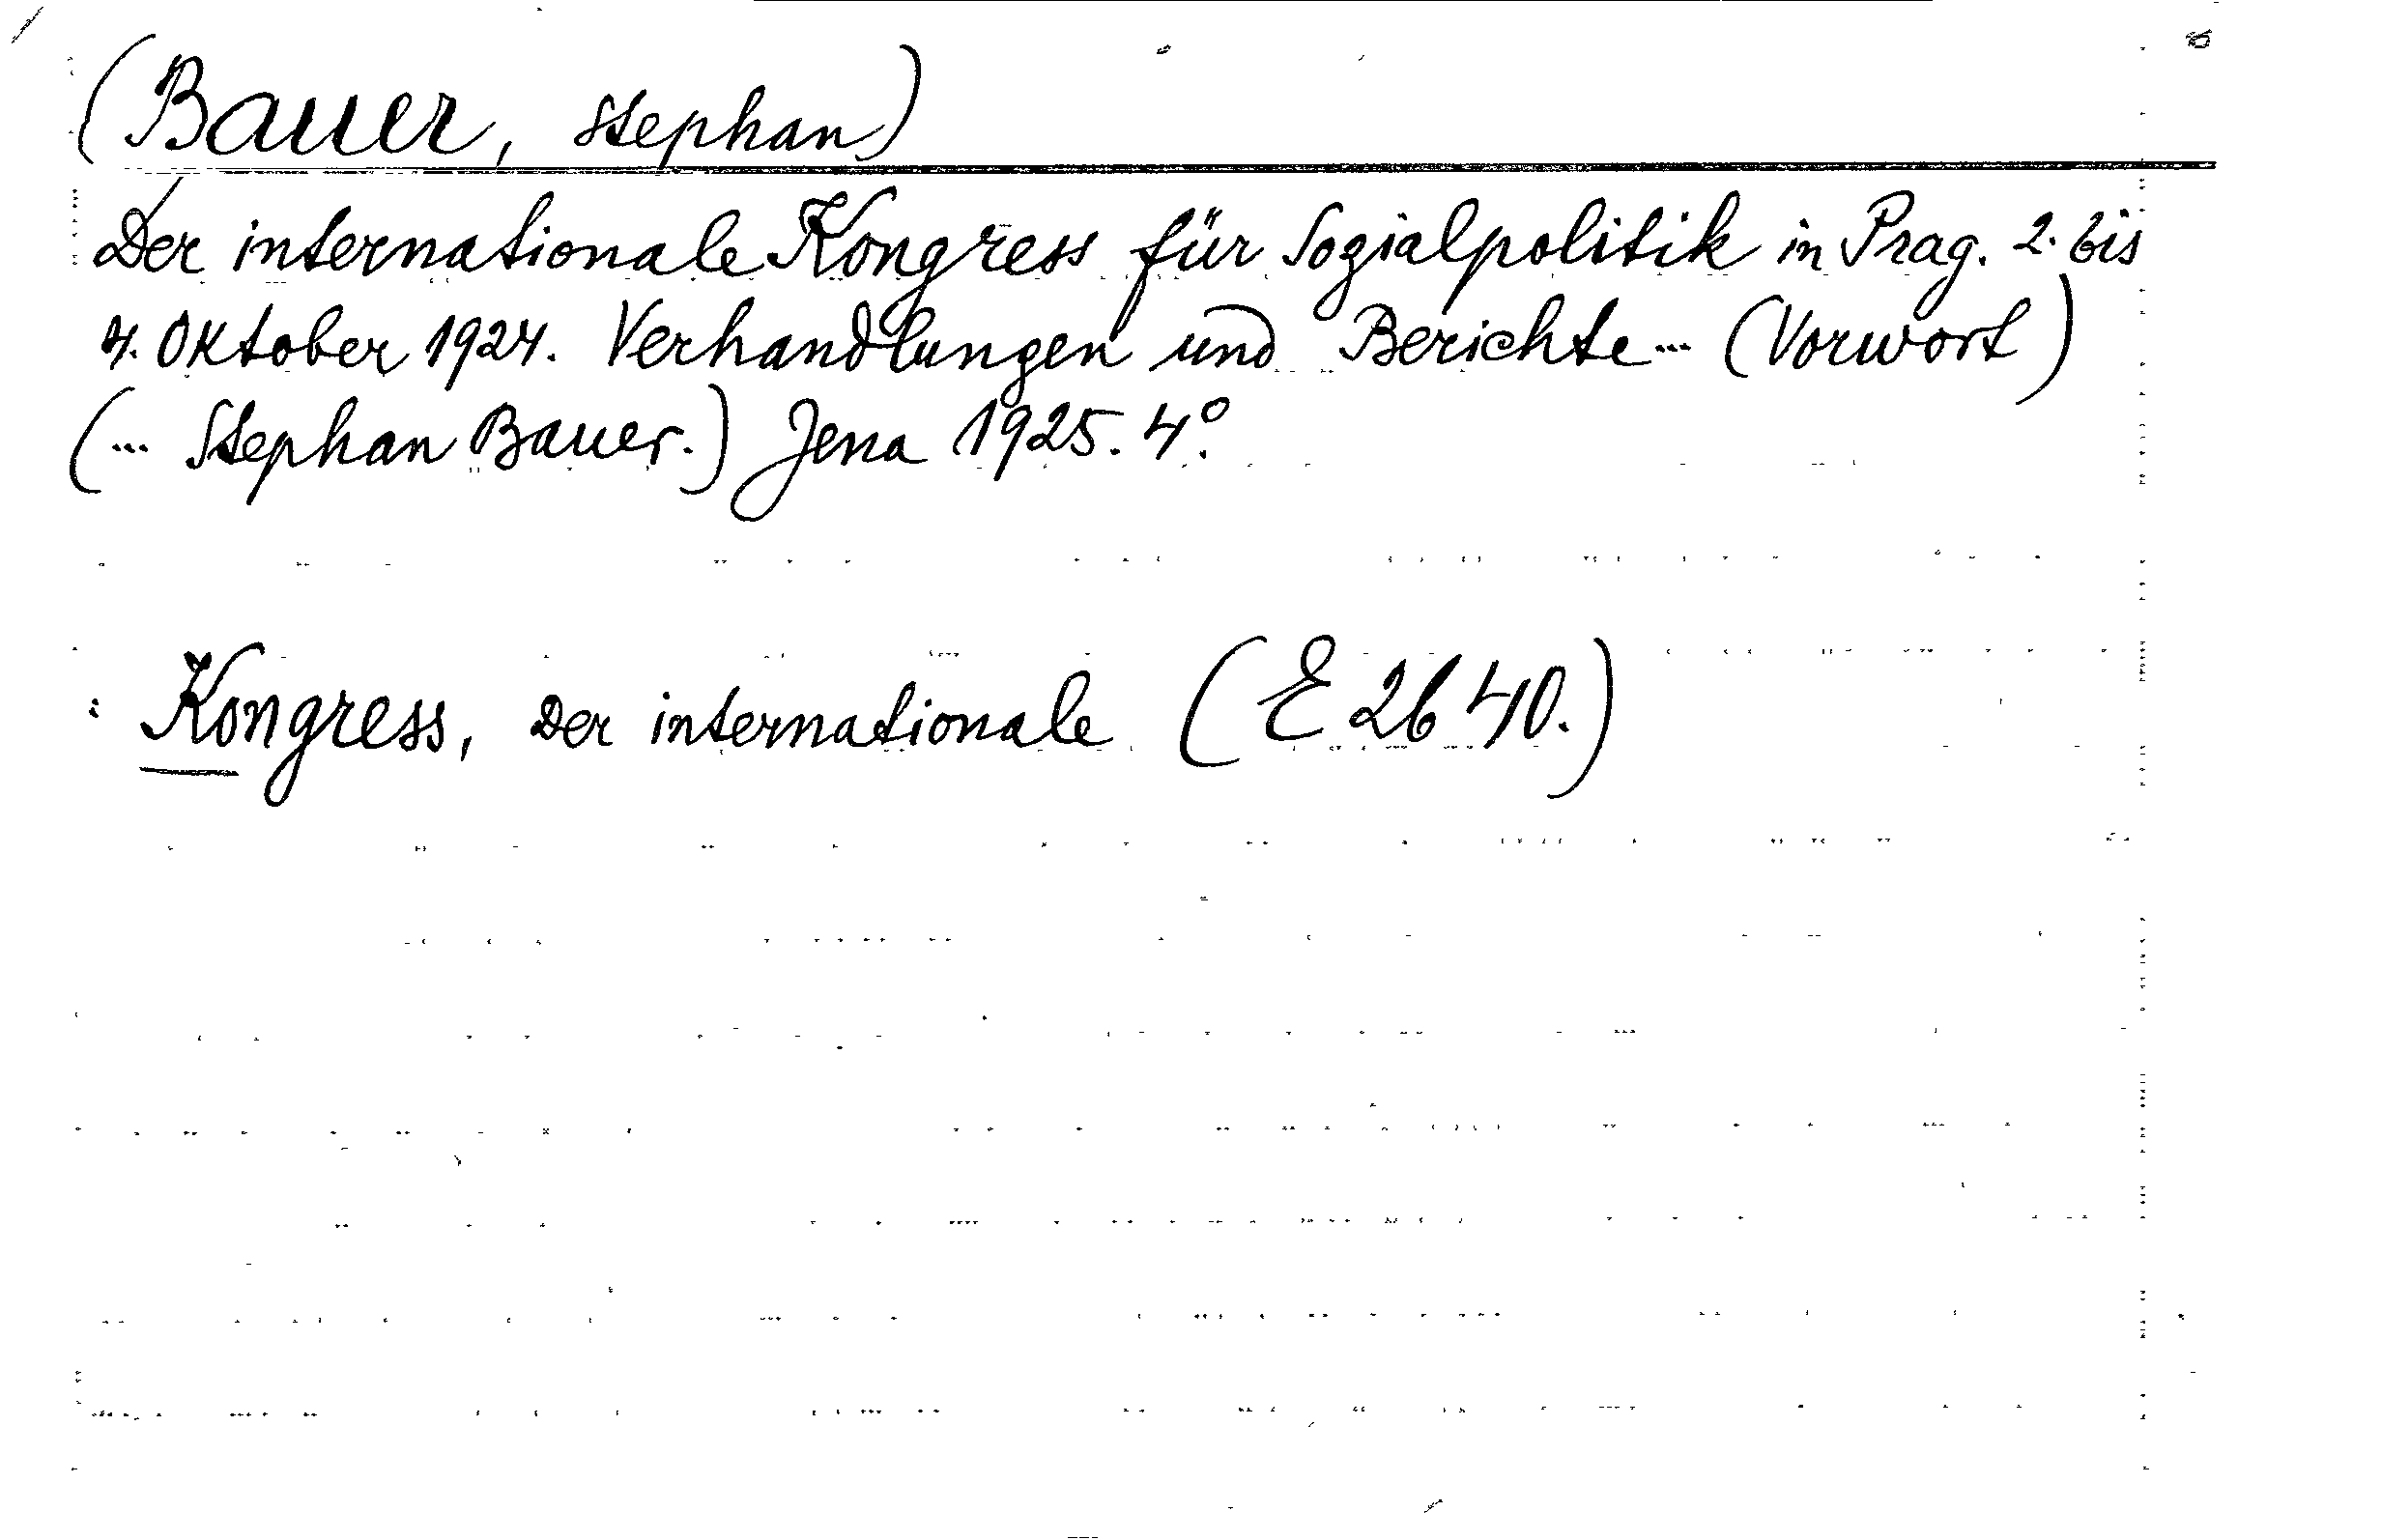 (Bauer, Stephan)
Der internationale Kongress für Sozialpolitik in Prag. 2. bis
4. Oktober 1924. Verhandlungen und Berichte... (Vorwort)
(... Stephan Bauer.) Jena 1925. 4°.
Kongress, Der internationale (E 2640.)